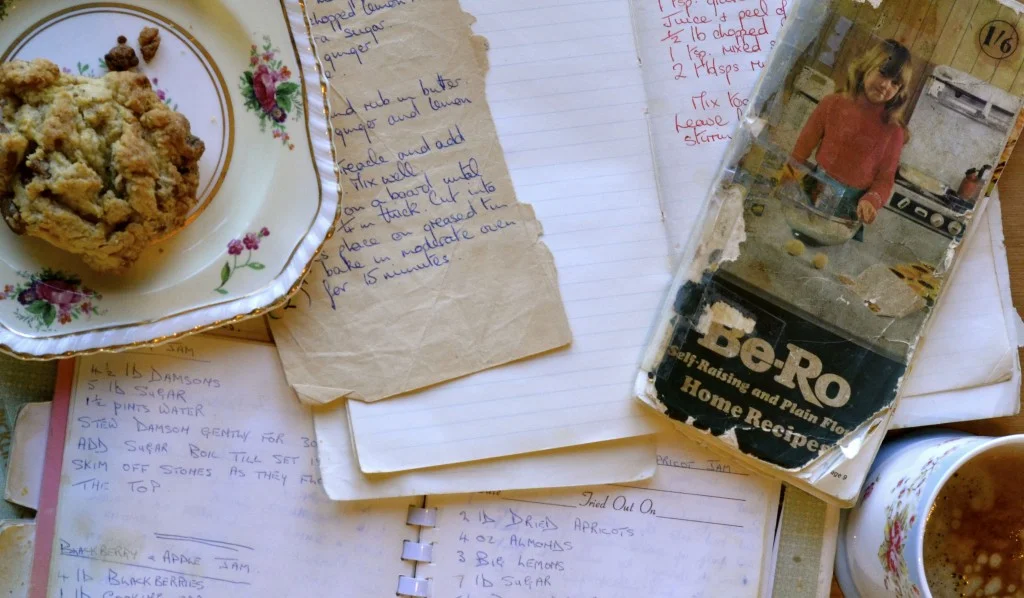 chopped lemon
sugar
ginger
and rub in butter
ginger and lemon
treacle and add
Mix well
on a board until
in thick. Cut into
place on greased tin
bake in moderate oven
for 15 minutes.
1 tsp.
Juice & peel of
½ lb chopped
1 tsp. mixed
2 tbsps
Mix
Leave
stirring
1/6
Be-Ro
Self-Raising and Plain Flo
Home Recipes
JAM
4½ lb DAMSONS
5 lb SUGAR
1½ PINTS WATER
STEW DAMSON GENTLY FOR 30
ADD SUGAR BOIL TILL SET
SKIM OFF STONES AS THEY
THE TOP.
BLACKBERRY & APPLE JAM
4 lb BLACKBERRIES
APRICOT JAM
Tried Out On
2 lb DRIED APRICOTS
4 oz ALMONDS
3 BIG LEMONS
7 lb SUGAR